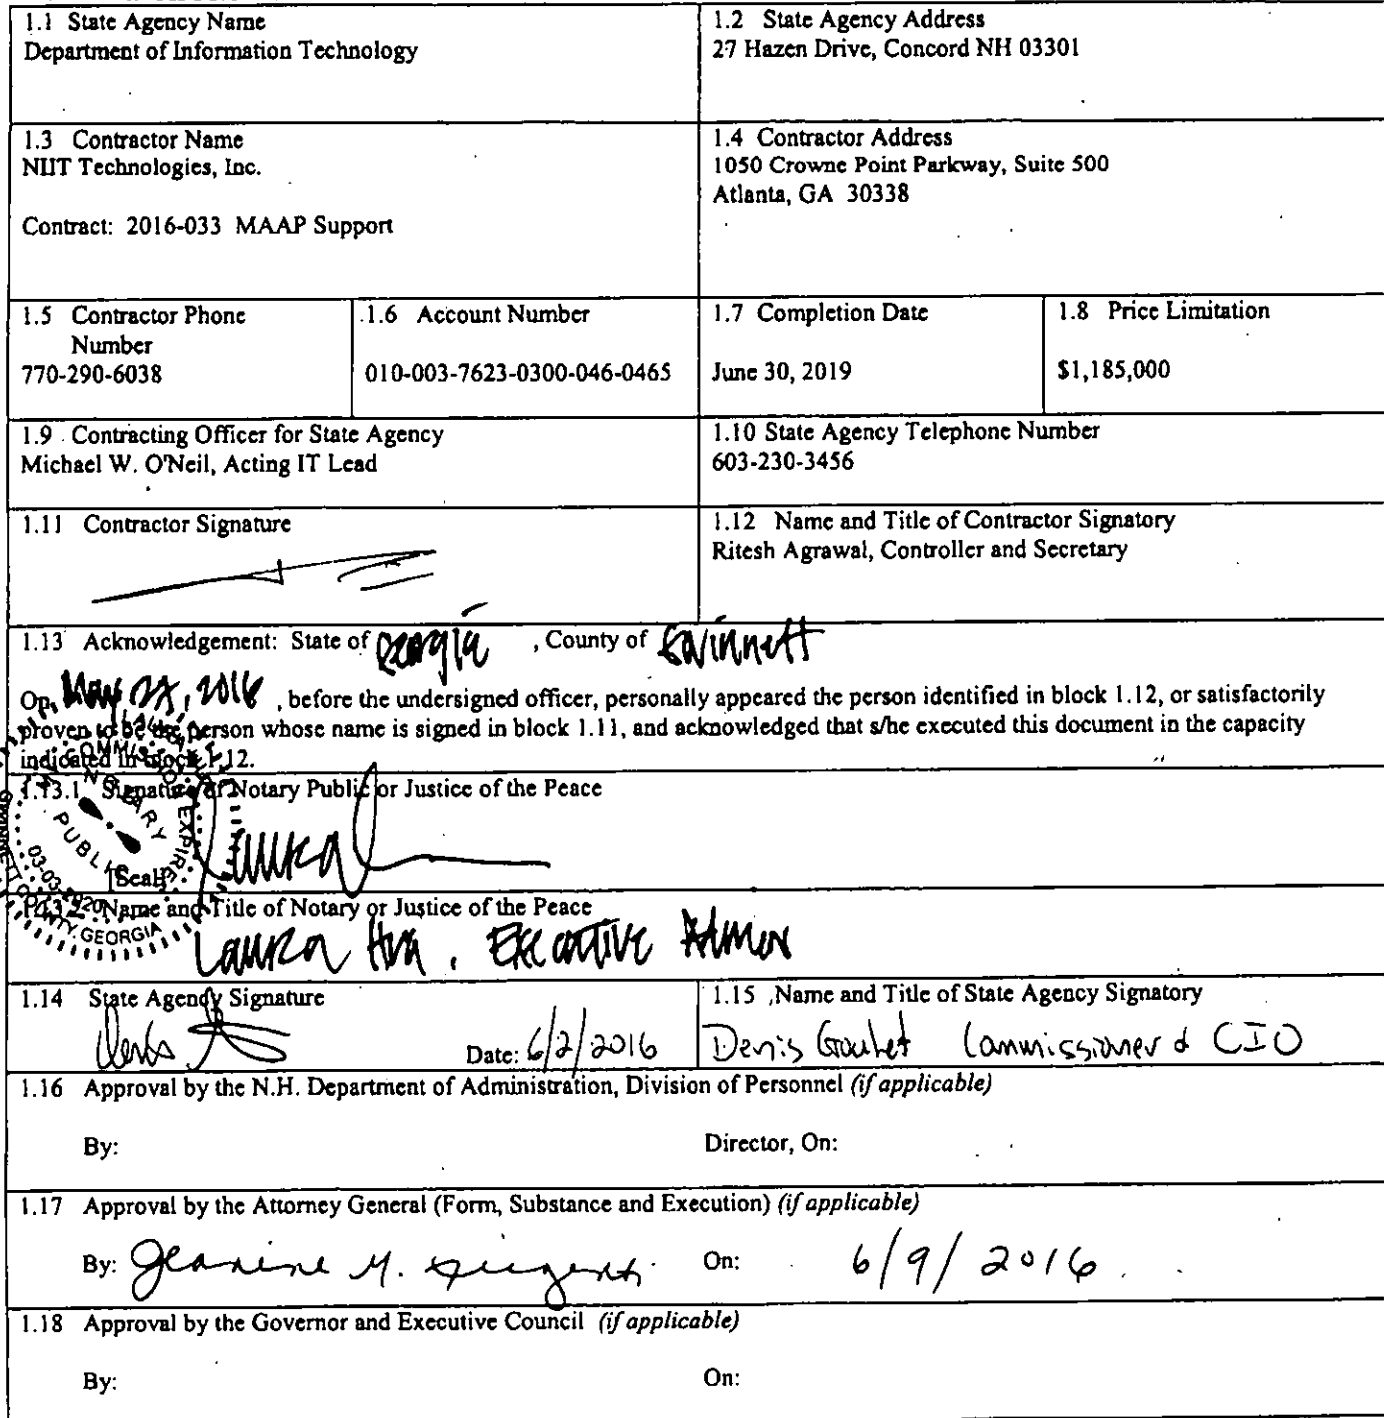 1.1 State Agency Name
Department of Information Technology
1.2 State Agency Address
27 Hazen Drive, Concord NH 03301
1.3 Contractor Name
NIIT Technologies, Inc.
Contract: 2016-033 MAAP Support
1.4 Contractor Address
1050 Crowne Point Parkway, Suite 500
Atlanta, GA 30338
1.5 Contractor Phone
Number
770-290-6038
1.6 Account Number
010-003-7623-0300-046-0465
1.7 Completion Date
June 30, 2019
1.8 Price Limitation
$1,185,000
1.9 Contracting Officer for State Agency
Michael W. O'Neil, Acting IT Lead
1.10 State Agency Telephone Number
603-230-3456
1.11 Contractor Signature
1.12 Name and Title of Contractor Signatory
Ritesh Agrawal, Controller and Secretary
1.13 Acknowledgement: State of Georgia , County of Gwinnett
On, May 27, 2016 , before the undersigned officer, personally appeared the person identified in block 1.12, or satisfactorily
proven to be the person whose name is signed in block 1.11, and acknowledged that s/he executed this document in the capacity
indicated in block 1.12.
1.13.1 Signature of Notary Public or Justice of the Peace
Laura
[Seal]
NOTARY
PUBLIC
03-03-2020
GWINNETT COUNTY, GEORGIA
1.13.2 Name and Title of Notary or Justice of the Peace
Laura , Executive Admin
1.14 State Agency Signature
Denis
Date: 6/2/2016
1.15 Name and Title of State Agency Signatory
Denis Goulet Commissioner & CIO
1.16 Approval by the N.H. Department of Administration, Division of Personnel (if applicable)
By:
Director, On:
1.17 Approval by the Attorney General (Form, Substance and Execution) (if applicable)
By: Jeanine M.
On: 6/9/2016
1.18 Approval by the Governor and Executive Council (if applicable)
By:
On: